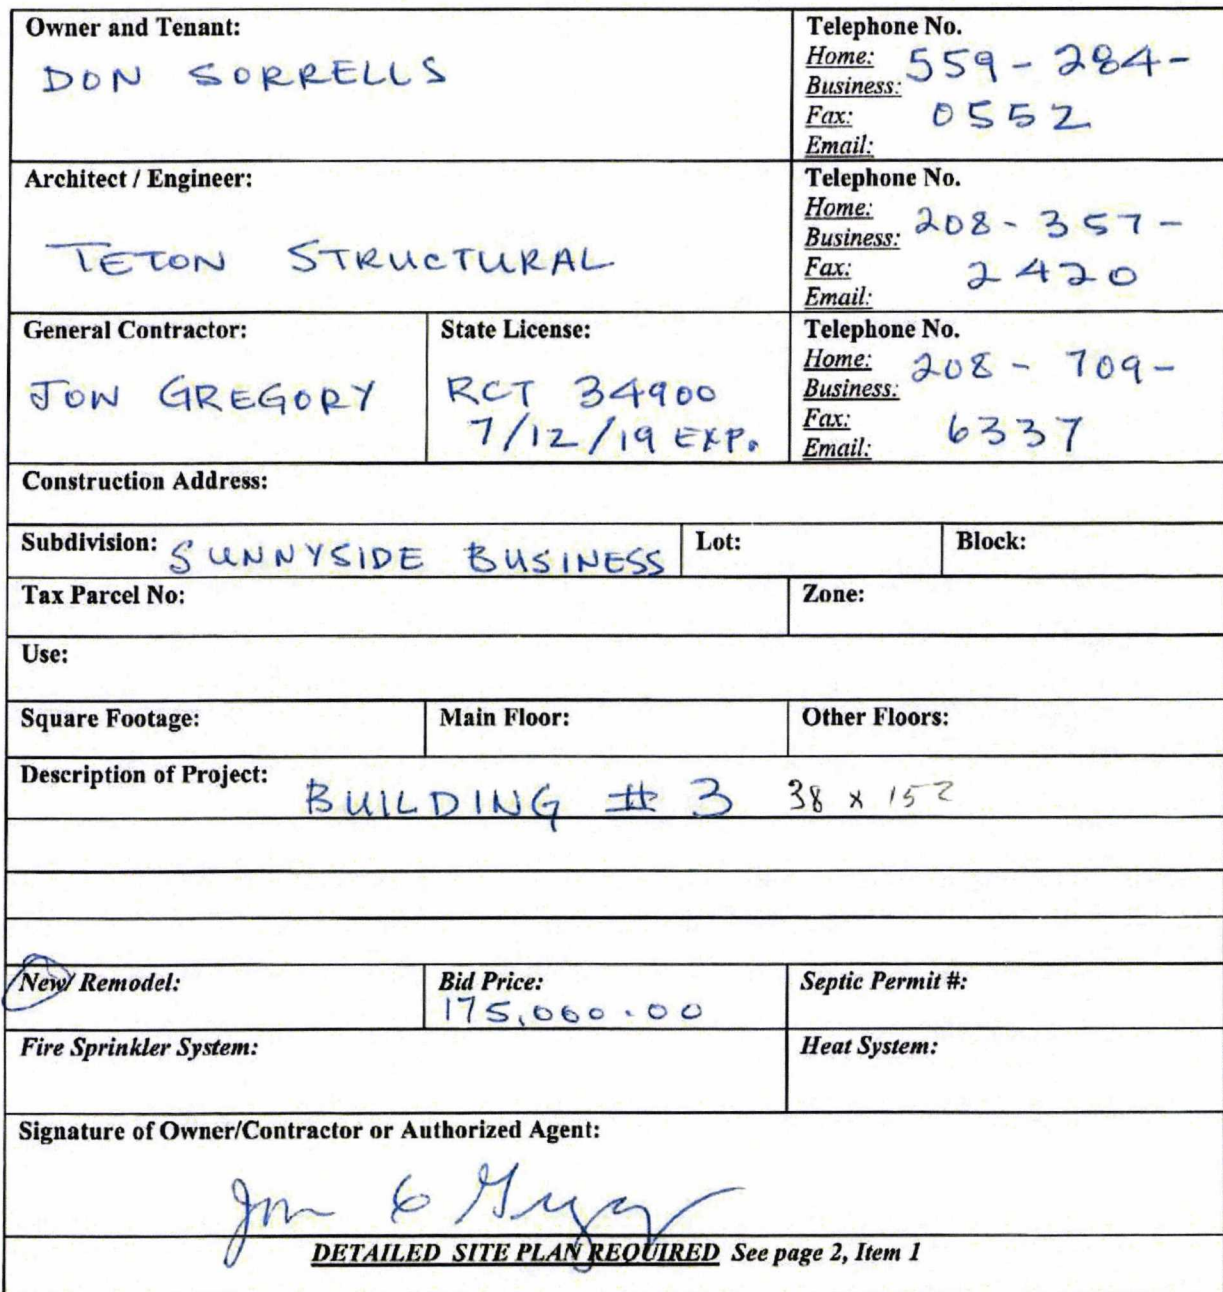 Owner and Tenant:
DON SORRELLS
Telephone No.
Home: 559-284-
Business:
Fax: 0552
Email:
Architect / Engineer:
TETON STRUCTURAL
Telephone No.
Home: 208-357-
Business:
Fax: 2420
Email:
General Contractor:
JON GREGORY
State License:
RCT 34900
7/12/19 EXP.
Telephone No.
Home: 208-709-
Business:
Fax: 6337
Email:
Construction Address:
Subdivision: SUNNYSIDE BUSINESS Lot: Block:
Tax Parcel No: Zone:
Use:
Square Footage: Main Floor: Other Floors:
Description of Project: BUILDING # 3 38 x 152
New/ Remodel: Bid Price: Septic Permit #:
175,000.00
Fire Sprinkler System: Heat System:
Signature of Owner/Contractor or Authorized Agent:
DETAILED SITE PLAN REQUIRED See page 2, Item 1